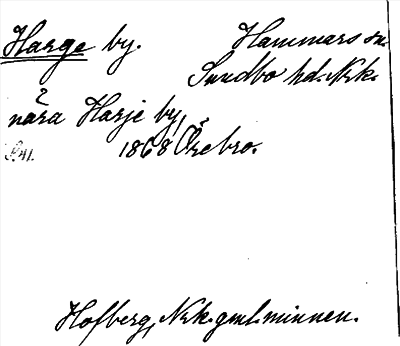 Harge by. Hammars sn.
Sundbo hd. Nrk.
?
nära Harje by,
1868 Örebro.
Hofberg, Nrk. gml. minnen.